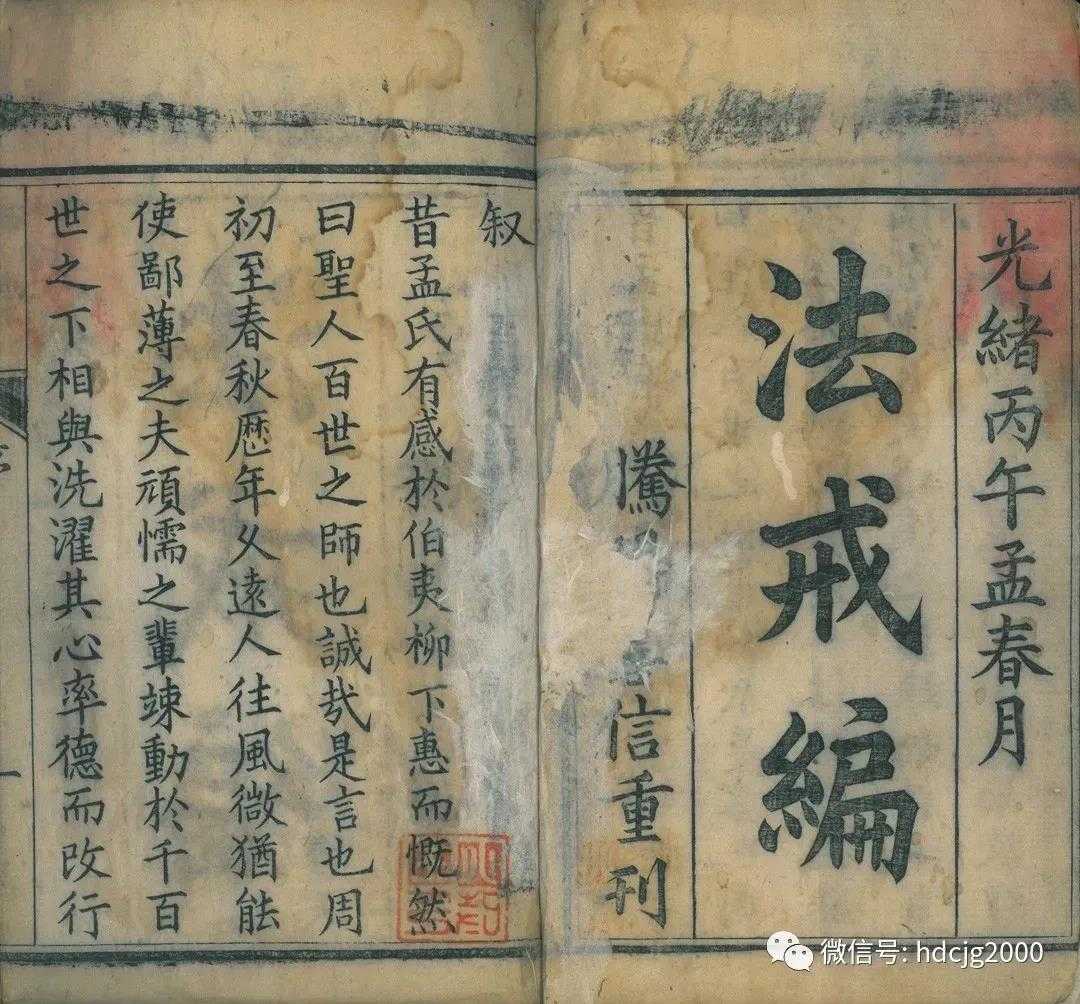 光緒丙午孟春月
法戒編
騰 信重刊
叙
昔孟氏有感於伯夷柳下惠而慨然
曰聖人百世之師也誠㢤是言也周
初至春秋歷年久遠人往風微猶能
使鄙薄之夫頑懦之輩竦動於千百
世之下相與洗濯其心率德而改行
一
微信号: hdcjg2000